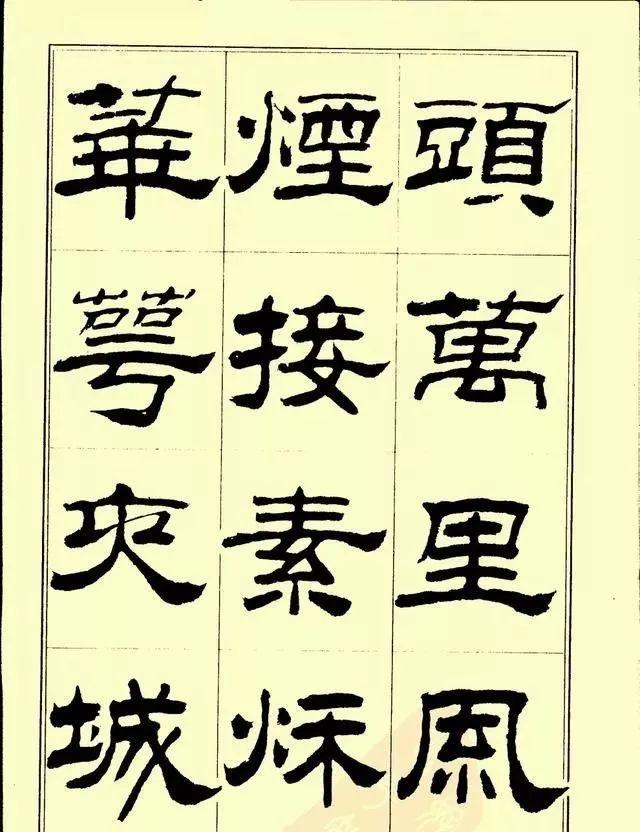 頭萬里風
煙接素秌
華萼夾城